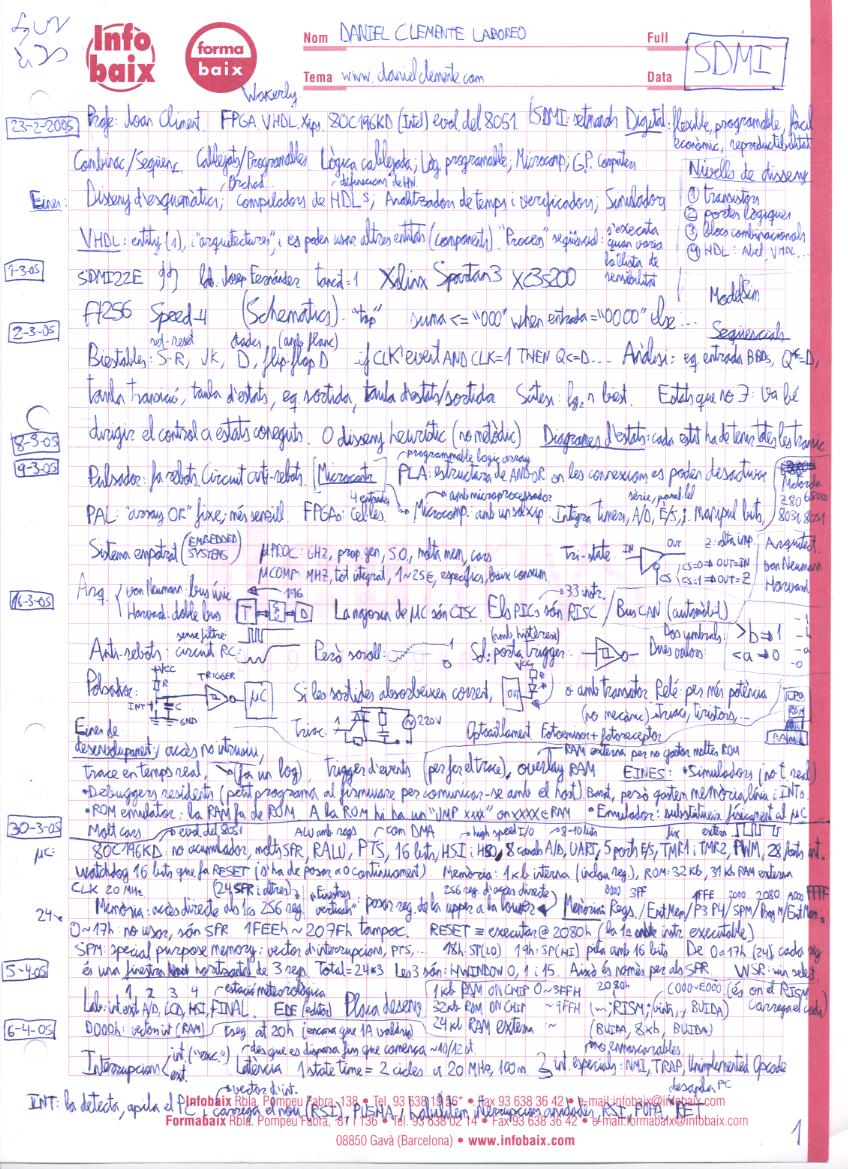 Info baix
forma baix
Nom DANIEL CLEMENTE LABOREO Full
Tema www.danielclemente.com Data
SDMI
Wakerly
23-2-2005 Profe: Joan Climent. FPGA, VHDL, Xips. 80C196KD (Intel) evol. del 8051. Digital: flexible, programable, fàcil
econòmic, reproductibilitat
Combinac/Seqüenc. Cablejats/Programables Lògica cablejada; Lòg programable; Microcomp; G.P. Computers
Nivells de disseny
Orchad... definicions de HW
Eines: Disseny d'esquemàtics; compiladors de HDLs; Analitzadors de temps i verificadors; Simuladors
① transistors
② portes lògiques
③ blocs combinacionals
④ HDL: Abel, VHDL...
VHDL: entity (1), i "arquitectures", i es poden usar altres entitats (components). "Proces" seqüencial: s'executa
quan varia
la llista de
sensibilitat
1-3-05 SDMI22E lab. Josep Fernández tancat=1 Xilinx Spartan3 XC3s200
ModelSim
Ft256 Speed-4 (Schematics). "top" suma <= "000" when entrada = "0000" else...
Seqüencials
2-3-05
set-reset dades (amb flanc)
Biestables: S-R, JK, D, flip-flop D if CLK'event AND CLK=1 THEN Q<=D... Anàlisi: eq. entrada BBDs, Q+=D,
taula transició, taula d'estats, eq sortida, taula d'estats/sortida Síntesi: log2 n biest. Estats que no ∃: va bé
dirigir el control a estats coneguts. O disseny heurístic (no metòdic) Diagrames d'estats: cada estat ha de tenir totes les trans
8-3-05
9-3-05
programable logic array
Pulsador: fa rebots. Circuit anti-rebots. Microcontr PLA: estructura de AND-OR on les connexions es poden desactivar
Motorola
Z80 6800
8051 8051
4 entrades amb microprocessador sèrie, paral·lel
PAL: "array OR" fixe; més senzill. FPGAs: cel·les. Microcomp. amb un sol xip. Integra timers, A/D, E/S, i Manipul bits,
Sistema empotrat (EMBEDDED SYSTEMS) μPROC: GHz, prop. gen, S.O., molta mem, cars
μCOMP: MHZ, tot integrat, 1~25€, específics, baix consum
Tri-state: IN OUT Z=alta imp.
CS CS=0⇒OUT=IN
CS=1⇒OUT=Z
Arquitect.
von Neumann
Harvard
16-3-05 Arq. von Neumann: bus únic 196
Harvard: doble bus T D
33 instr.
La majoria de μC són CISC. Els PICs són RISC / Bus CAN (automòbil)
sense filtre
Anti-rebots: circuit RC: Però soroll: 1 0
(amb histèresi)
Sol: porta trigger:
Dos umbrals: >b⇒1
Dues valors: <a⇒0
Pulsador: +VCC R INT C GND TRIGGER μC
Si les sortides absorbeixen corrent, out VCC R o amb transistor Relé: per més potència
(no mecànic): triacs, tiristors,...
Triac: 220V
Optoaïllament Fotoemissor + fotoreceptor
RAM
Eines de
desenvolupament: accés no intrusiu,
RAM externa per no gastar moltes ROM
trace en temps real, (fa un log), Trigger d'events (per fer el trace), overlay RAM EINES: • Simuladors (no t. real)
• Debuggers residents (petit programa al firmware per comunicar-se amb el host) Barat, però gasten memòria, línia i INTs
• ROM emulator: la RAM fa de ROM A la ROM hi ha un "JMP xxx" on xxxx ∈ RAM • Emulador: substitueix físicament al μC
30-3-05 Molt cars
evol. del 8051 ALU amb regs con DMA high speed I/O 8-10 bits
μC: 80C196KD: no acumulador, molts SFR, RALU, PTS, 16 bits, HSI i HSO, 8 canals A/D, UART, 5 ports E/S, TMR1 i TMR2, PWM, 28 fonts int.
Watchdog 16 bits que fa RESET (s'ha de posar a 0 contínuament) Memòria: 1Kb interna (inclou reg), ROM: 32Kb, 31 Kb RAM externa
CLK 20 MHz (24 SFR i altres) "Finestres verticals" 256 reg. d'accés directe 0000 3FF 1FFE 2000 2080 A000 FFFF
Memòria: accés directe als 1es 256 reg. posar reg. de la upper a la lower Memòria: Regs / Ext Mem / P3 P4 / SPM / Prog M / Ext Mem.
24
0~17h: no usar, són SFR 1FEEh~207Fh tampoc. RESET ≡ executar @ 2080h (la 1a instr executable)
SPM: special purpose memory: vector d'interrupcions, PTS,... 18h SP(LO) 19h: SP(HI) pila amb 16 bits De 0 a 17h (24) cada reg
5-4-05 és una finestra horitzontal de 3 reg. Total=24*3 Les 3 són: HWINDOW 0, 1 i 15. Això és només per als SFR WSR: win select.
1 2 3 4 estació meteorològica
Lab: int ext A/D, LCD, HSI, FINAL. EDE (editor) Placa desenv
1kb RAM ON CHIP 0~3FFH
32kb ROM ON CHIP ~9FFH
24kb RAM externa ~
2080h C000~E000 (és on el RISM
(~; RISM; vints, , BUIDA) carrega el codi)
(BUIDA, 8kb, BUIDA)
6-4-05 D000h: vector int (RAM)
Interrupcions int ("exc.")
ext.
des que es dispara fins que comença ~10/12 st
Latència 1 state time = 2 cicles a 20 MHz, 100 n
no enmascarables
3 int. especials: NMI, TRAP, Unimplemented Opcode
vector d'int. desapila PC
INT: la detecta, apila el PC, carrega el nou (RSI), PUSHA, RSI, POPA, RET
Infobaix Rbla. Pompeu Fabra, 138 • Tel. 93 638 19 56 • Fax 93 638 36 42 • e-mail: infobaix@infobaix.com
Formabaix Rbla. Pompeu Fabra, 87 / 136 • Tel. 93 638 02 14 • Fax 93 638 36 42 • e-mail: formabaix@infobaix.com
08850 Gavà (Barcelona) • www.infobaix.com
1